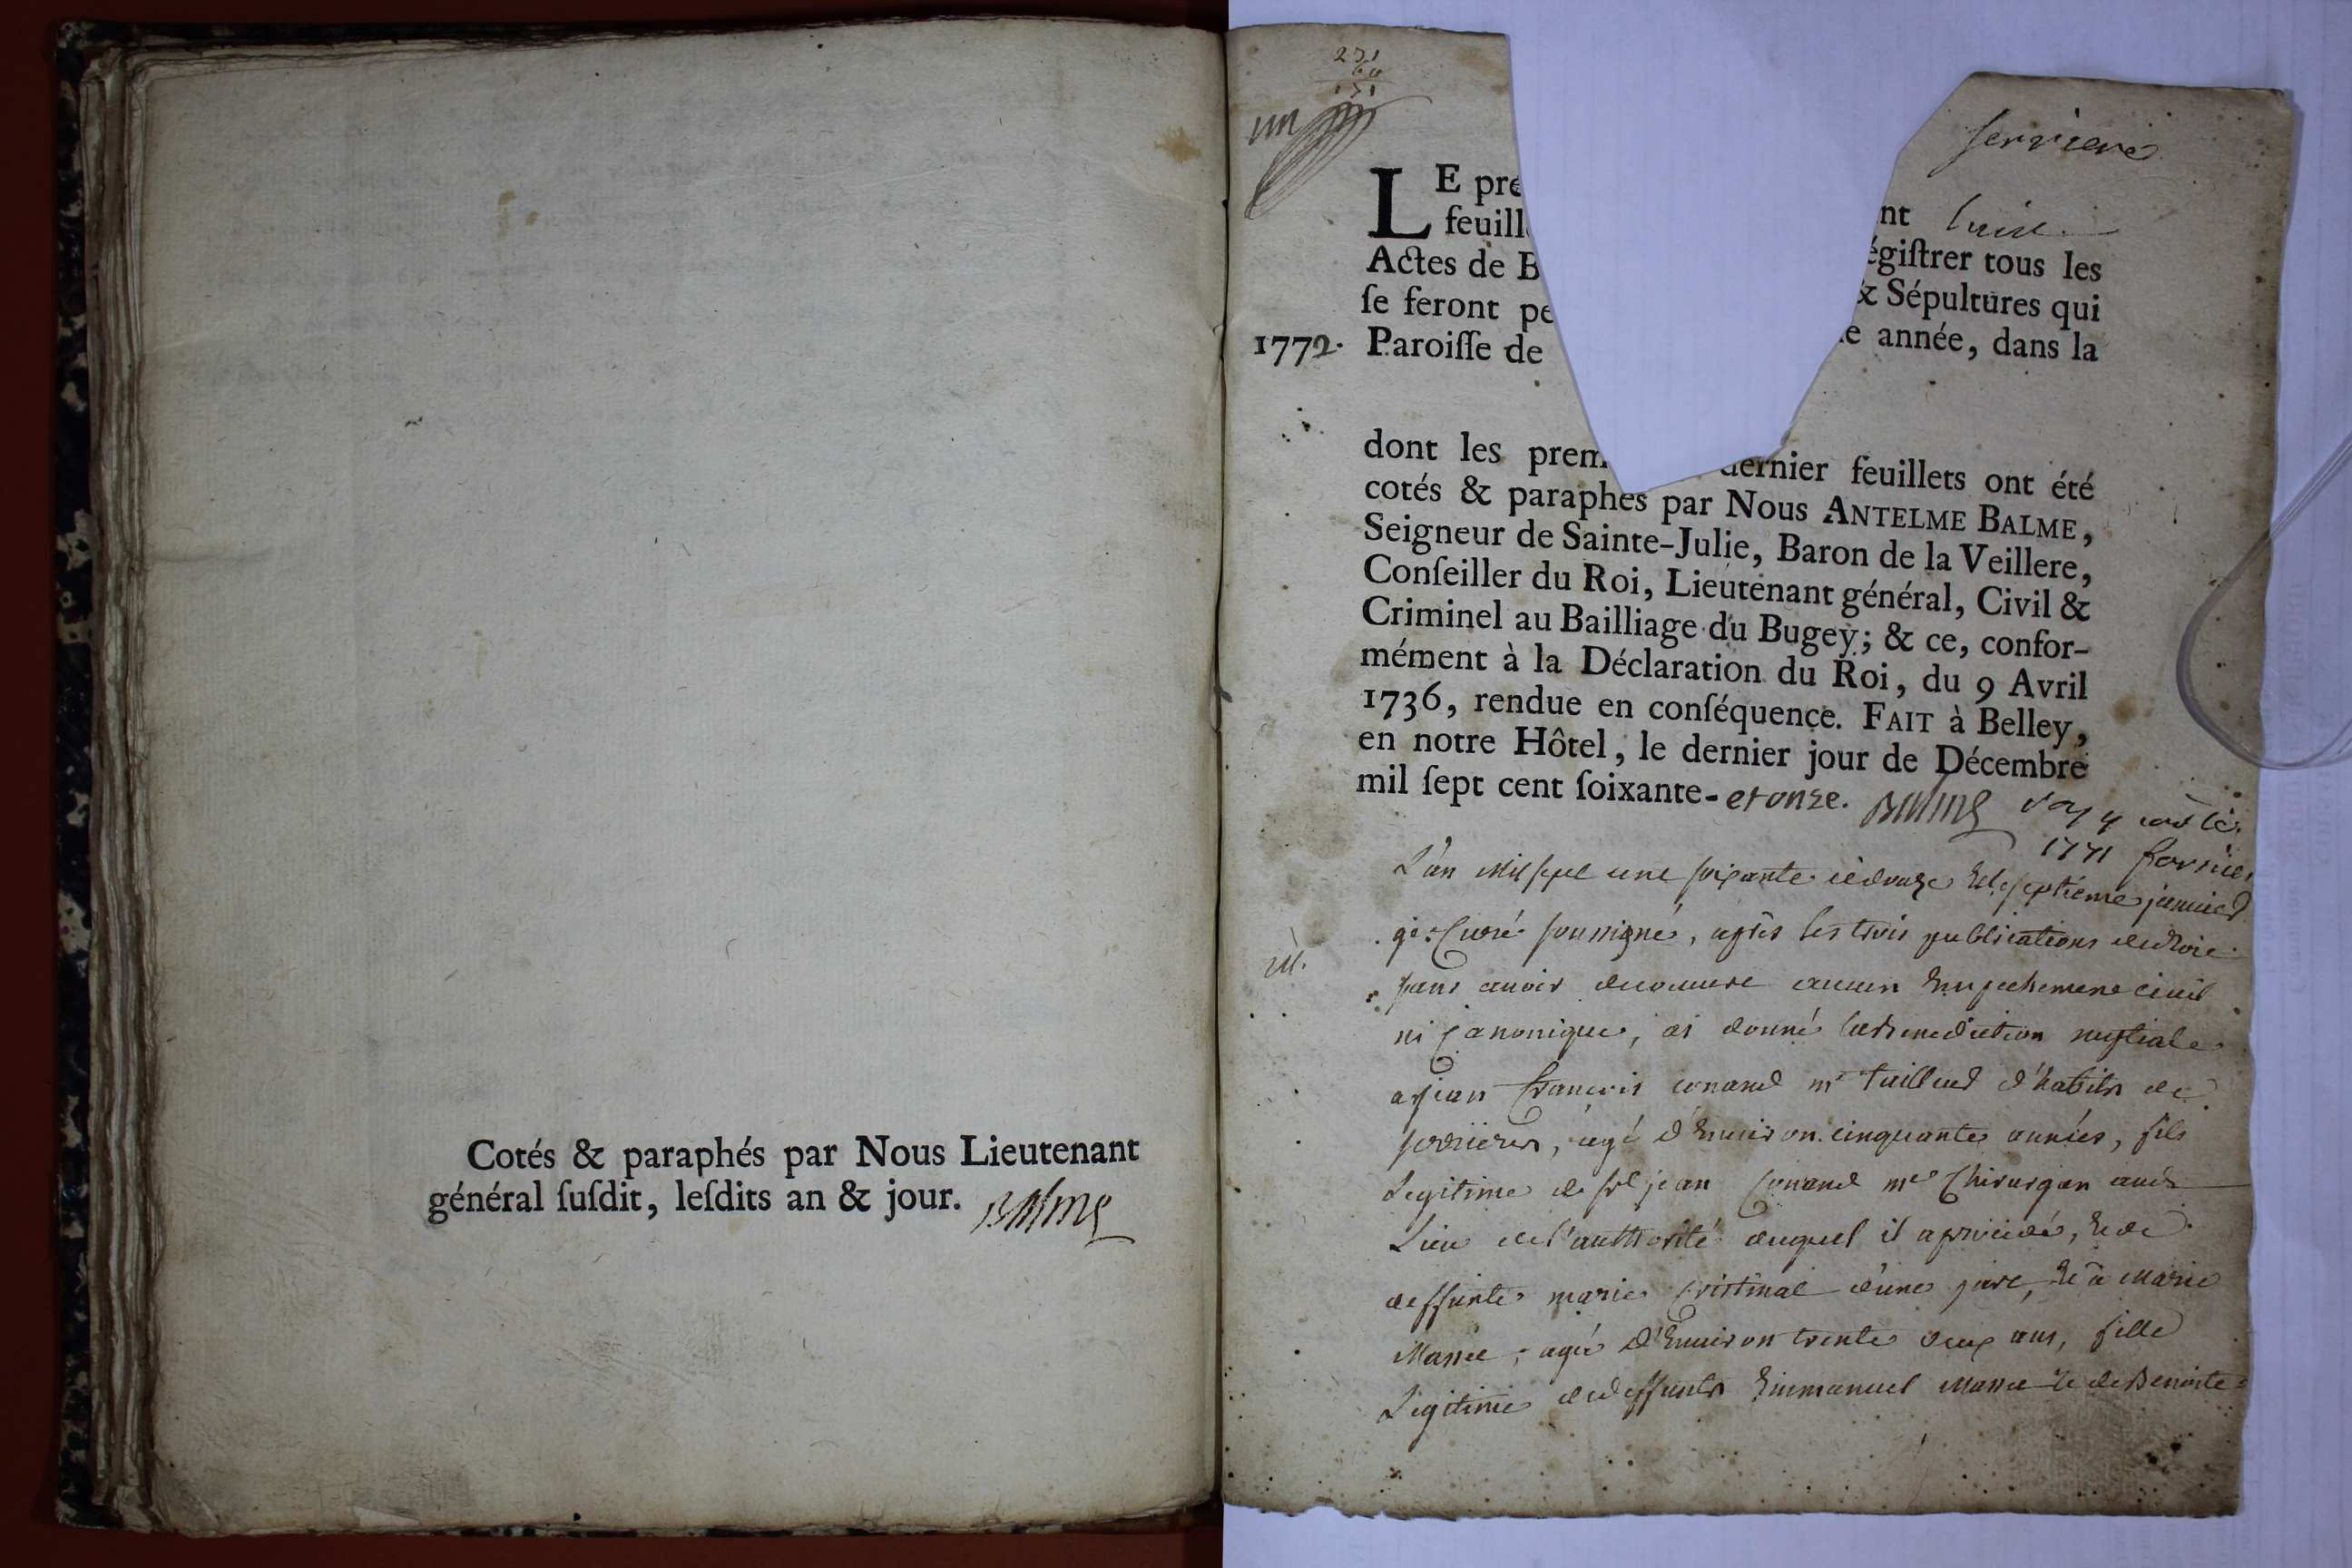 Cotés & paraphés par Nous Lieutenant
général ſuſdit, leſdits an & jour. Balme
231
60
171
un
Serrieres
LE pre
feuill nt huit
Actes de B égiſtrer tous les
ſe feront pe & Sépultures qui
1772. Paroiſſe de e année, dans la
dont les prem dernier feuillets ont été
cotés & paraphés par Nous ANTELME BALME,
Seigneur de Sainte-Julie, Baron de la Veillere,
Conſeiller du Roi, Lieutenant général, Civil &
Criminel au Bailliage du Bugey; & ce, confor-
mément à la Déclaration du Roi, du 9 Avril
1736, rendue en conſéquence. FAIT à Belley,
en notre Hôtel, le dernier jour de Décembre
mil ſept cent ſoixante- et onze. Balme
1771
L'an mil sept cent soixante et douze et le septieme janvier
curé soussigné, après les trois publications
sans avoir decouvert aucun Empechement civil
ni canonique, ai donné la benediction nuptiale
a jean françois conand me tailleur d'habits de
serrieres, agé d'Environ cinquante années, fils
Legitime de jean Conand me Chirurgien aud
Lieu de l'authorité duquel il a procedé, et de
deffunte marie d'une part, et a Marie
agée d'Environ trente deux ans, fille
Legitime de deffunts Emmanuel et de Benoite